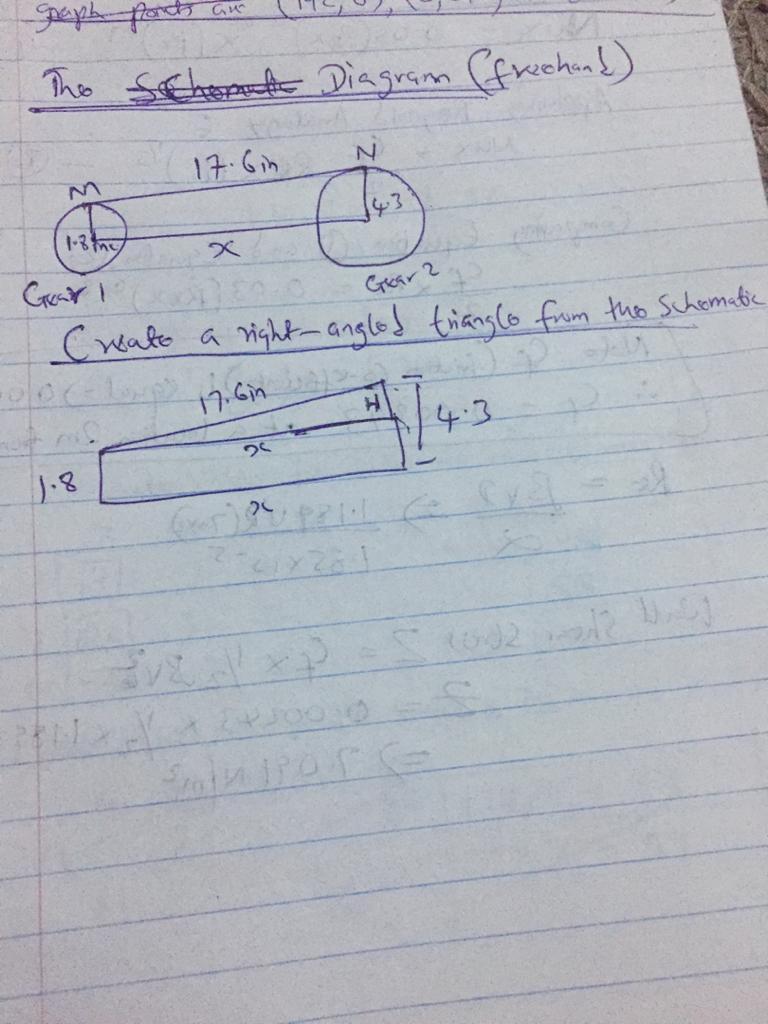 graph points are
The Schematic Diagram (freehand)
17.6in
M
N
1.8
4.3
x
Gear 1
Gear 2
Create a right-angled triangle from the schematic
17.6in
H
4.3
x
1.8
x